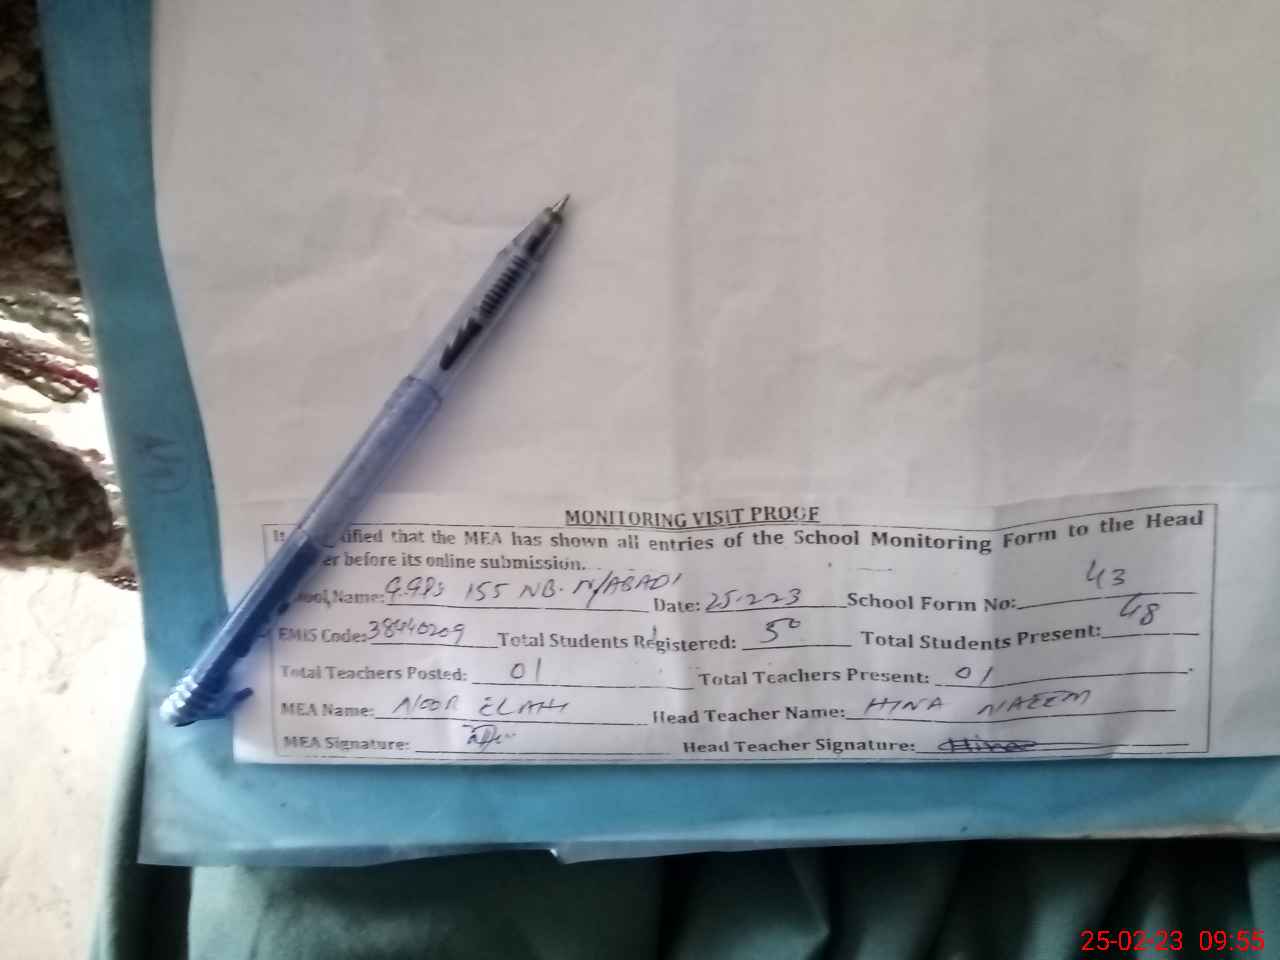 MONITORING VISIT PROOF
It tified that the MEA has shown all entries of the School Monitoring Form to the Head
er before its online submission.
ool Name: G.GPS 155 NB. N/ABADI Date: 25-2-23 School Form No: 43
EMIS Code: 38440209 Total Students Registered: 50 Total Students Present: 48
Total Teachers Posted: 01 Total Teachers Present: 01
MEA Name: NOOR ELAHI Head Teacher Name: HINA NAEEM
MEA Signature: Head Teacher Signature: Hina
25-02-23 09:55